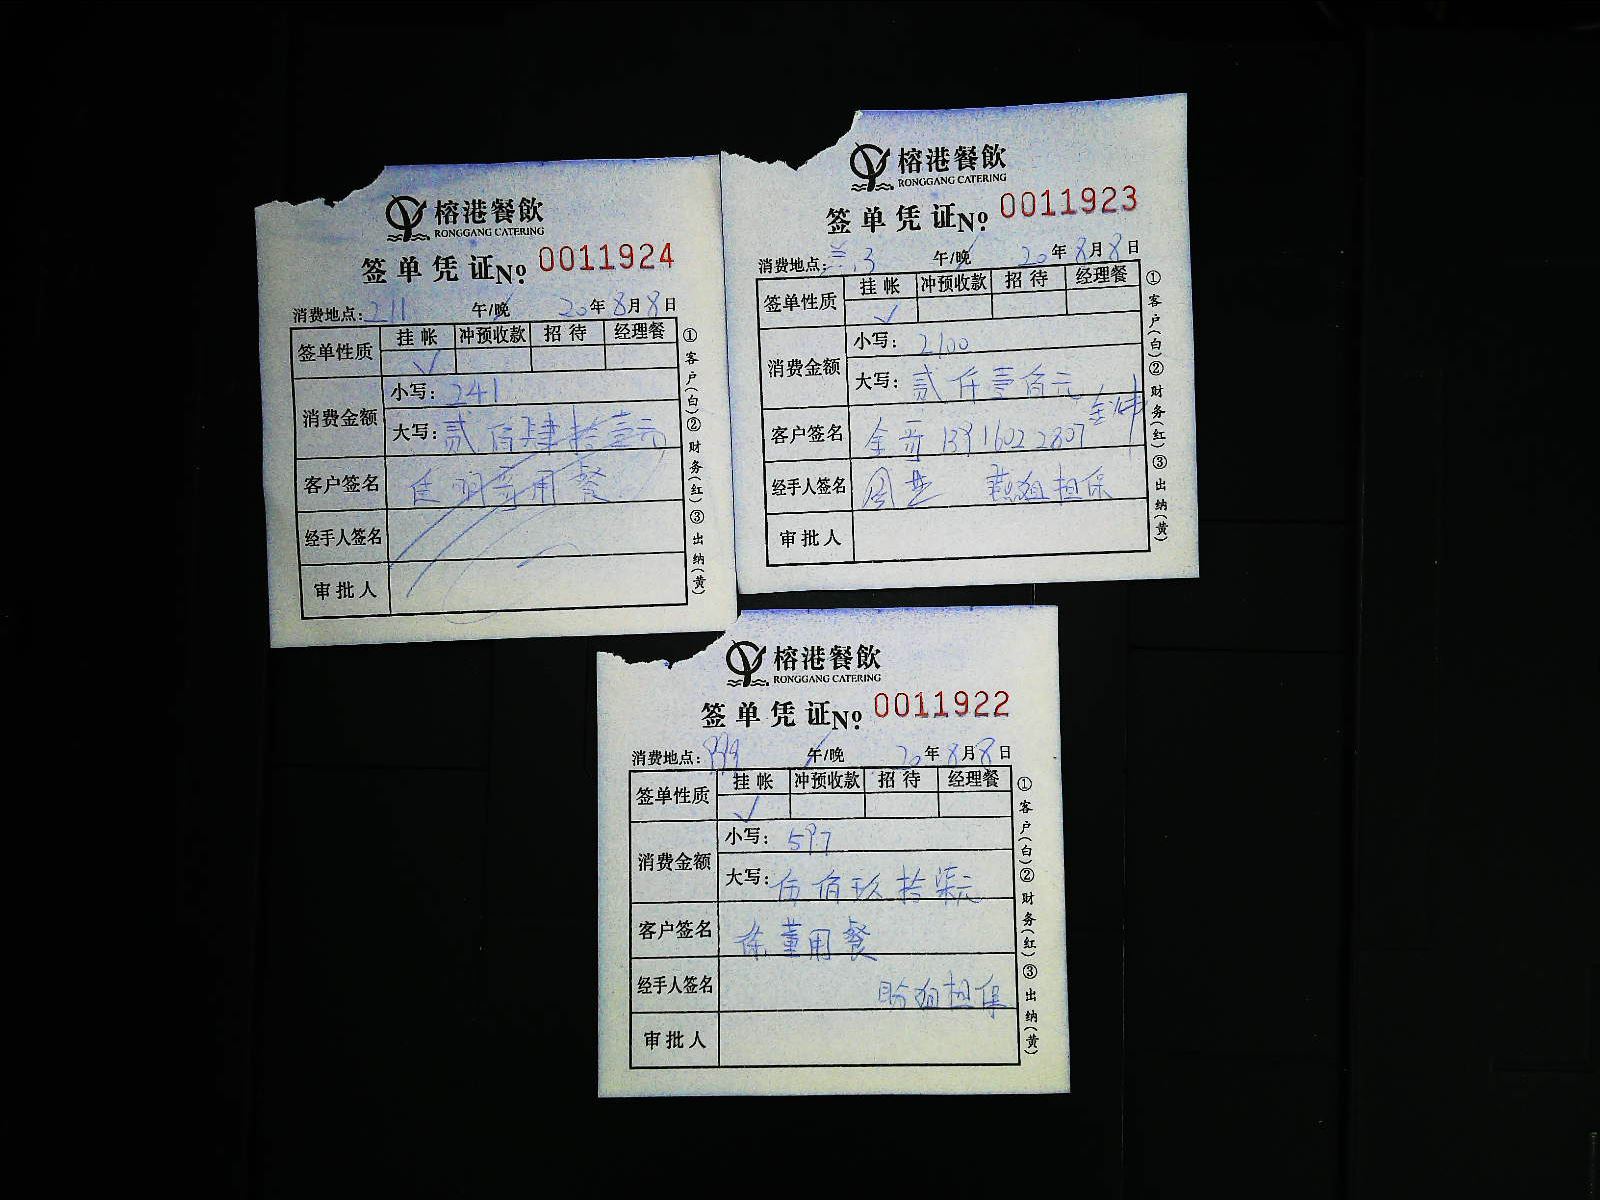 榕港餐飲
RONGGANG CATERING
签单凭证№ 0011924
消费地点: 211 午/晚 20年8月8日
签单性质 挂帐 冲预收款 招待 经理餐
✓
消费金额 小写: 241
大写: 贰佰肆拾壹元
客户签名 用餐
经手人签名
审批人
①客户(白)②财务(红)③出纳(黄)
榕港餐飲
RONGGANG CATERING
签单凭证№ 0011923
消费地点: 午/晚 20年8月8日
签单性质 挂帐 冲预收款 招待 经理餐
✓
消费金额 小写: 2100
大写: 贰仟壹佰元
客户签名 金哥 13916022807
经手人签名 担保
审批人
①客户(白)②财务(红)③出纳(黄)
榕港餐飲
RONGGANG CATERING
签单凭证№ 0011922
消费地点: 999 午/晚 20年8月8日
签单性质 挂帐 冲预收款 招待 经理餐
✓
消费金额 小写: 597
大写: 伍佰玖拾柒元
客户签名 徐董用餐
经手人签名 担保
审批人
①客户(白)②财务(红)③出纳(黄)